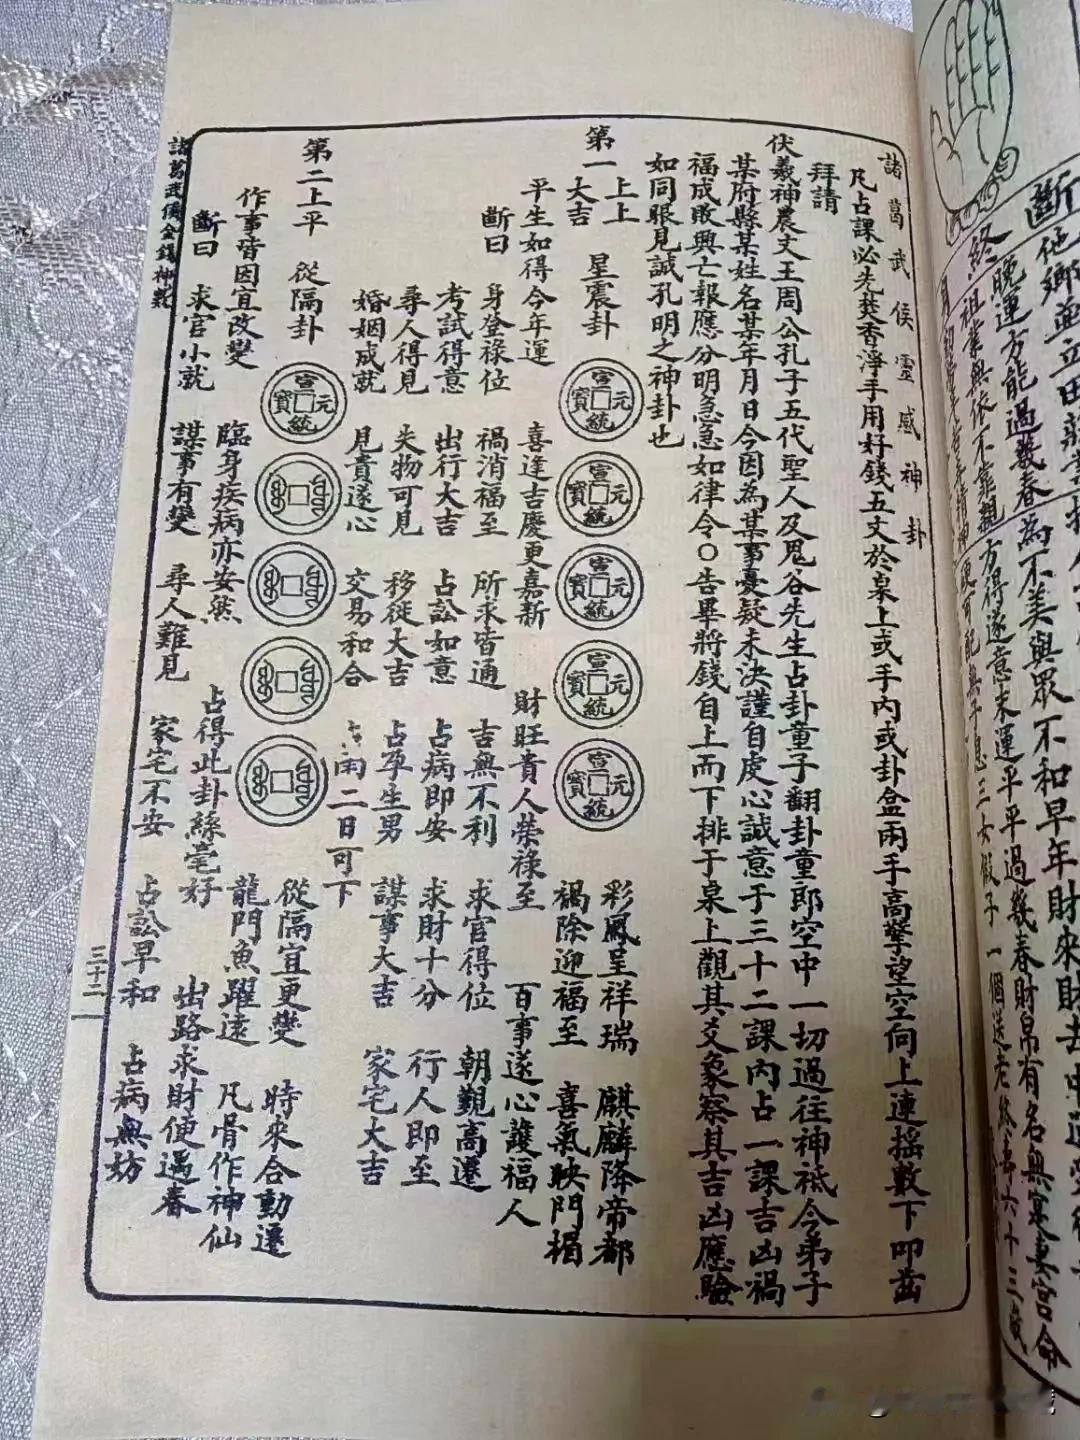 斷
他鄉並立田莊
終
晚運方能過幾春
祖業無依不靠親
為不美與眾不和早年財來財去中運
方得遂意末運平平過幾春財帛有名無寔妻宮命
三女假子一個送老終壽六十三歲
諸葛武侯靈感神卦
凡占課必先焚香淨手用好錢五文於桌上或手內或卦盒兩手高擎望空向上連搖數下叩齒
拜請
伏羲神農文王周公孔子五代聖人及鬼谷先生占卦童子翻卦童郎空中一切過往神祗今弟子
某府縣某姓名某年月日今因為某事憂疑未決謹自處心誠意于三十二課內占一課吉凶禍
福成敗興亡報應分明急急如律令〇告畢將錢自上而下排于桌上觀其爻象察其吉凶應驗
如同眼見誠孔明之神卦也
第一 上上 大吉 星震卦
宣統元寶
宣統元寶
宣統元寶
宣統元寶
宣統元寶
彩鳳呈祥瑞 麒麟降帝都
禍除迎福至 喜氣映門楣
平生如得今年運 喜逢吉慶更嘉新 財旺貴人榮祿至 百事遂心護福人
斷曰 身登祿位 禍消福至 所求皆通 吉無不利 求官得位 朝覲高遷
考試得意 出行大吉 占訟如意 占病即安 求財十分 行人即至
尋人得見 失物可見 移徙大吉 占孕生男 謀事大吉 家宅大吉
婚姻成就 見貴遂心 交易和合 雨二日可下
第二上平 從隔卦
宣統元寶
從隔宜更變 時來合動遷
龍門魚躍遠 凡骨作神仙
作事皆因宜改變 臨身疾病亦安然 占得此卦絲毫好 出路求財便遇春
斷曰 求官小就 謀事有變 尋人難見 家宅不安 占訟早和 占病無妨
諸葛武侯金錢神數
三十二